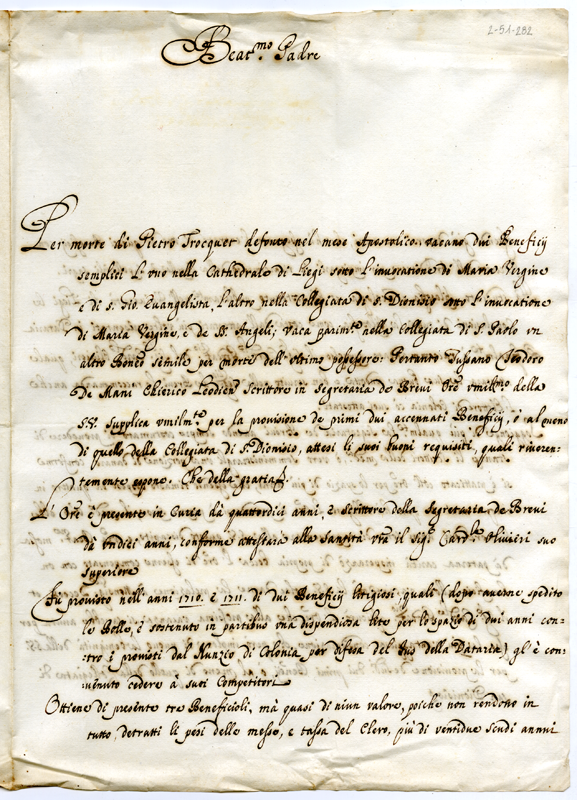 2-51-282
Beat.mo Padre
Per morte di Pietro Trocquet defonto nel mese Apostolico vacano dui Beneficij
semplici l'uno nella Cathedrale di Liegi sotto l'invocatione di Maria Vergine
e di S. Gio. Evangelista, l'altro nella Collegiata di S. Dionisio sotto l'invocatione
di Maria Vergine, e de SS. Angeli; vaca parim.te nella Collegiata di S. Paolo vn
altro Benef.o simile per morte dell'ultimo possessore: Pertanto Teodoro
De Mani Chierico Leodien scrittore in Segretaria de Brevi Ore vmil.mo della
S.V. supplica vmilm.te per la provisione de primi dui accennati Beneficij, ò almeno
di quello della Collegiata di S. Dionisio, attesi li suoi buoni requisiti, quali riveren-
temente espone. Che della gratia &.
L'Ore è presente in Curia dà quattordici anni, è scrittore della Segretaria de Brevi
dà vndici anni, conforme attestarà alla Santità vra il Sig.r Card.le Olivieri suo
superiore
Fù provisto nell'anni 1710. è 1711. di dui Beneficij litigiosi, quali (dopo averne spedito
le Bolle, è sostenuto in partibus vna dispendiosa lite per lo spazio di dui anni con-
tro i provisti dal Nunzio di Colonia per difesa del Jus della Dataria) gl'è con-
uenuto cedere à suoi Competitori
Ottiene di presente tre Beneficioli, mà quasi di niun valore, poiche non rendono in
tutto, detratti li pesi delle messe, e tassa del Clero, più di ventidue scudi annui